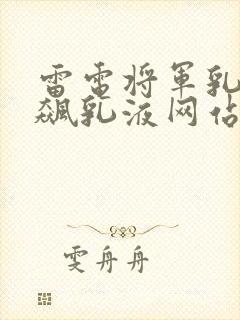 雷电将军乳
飙乳液网站
雯舟舟